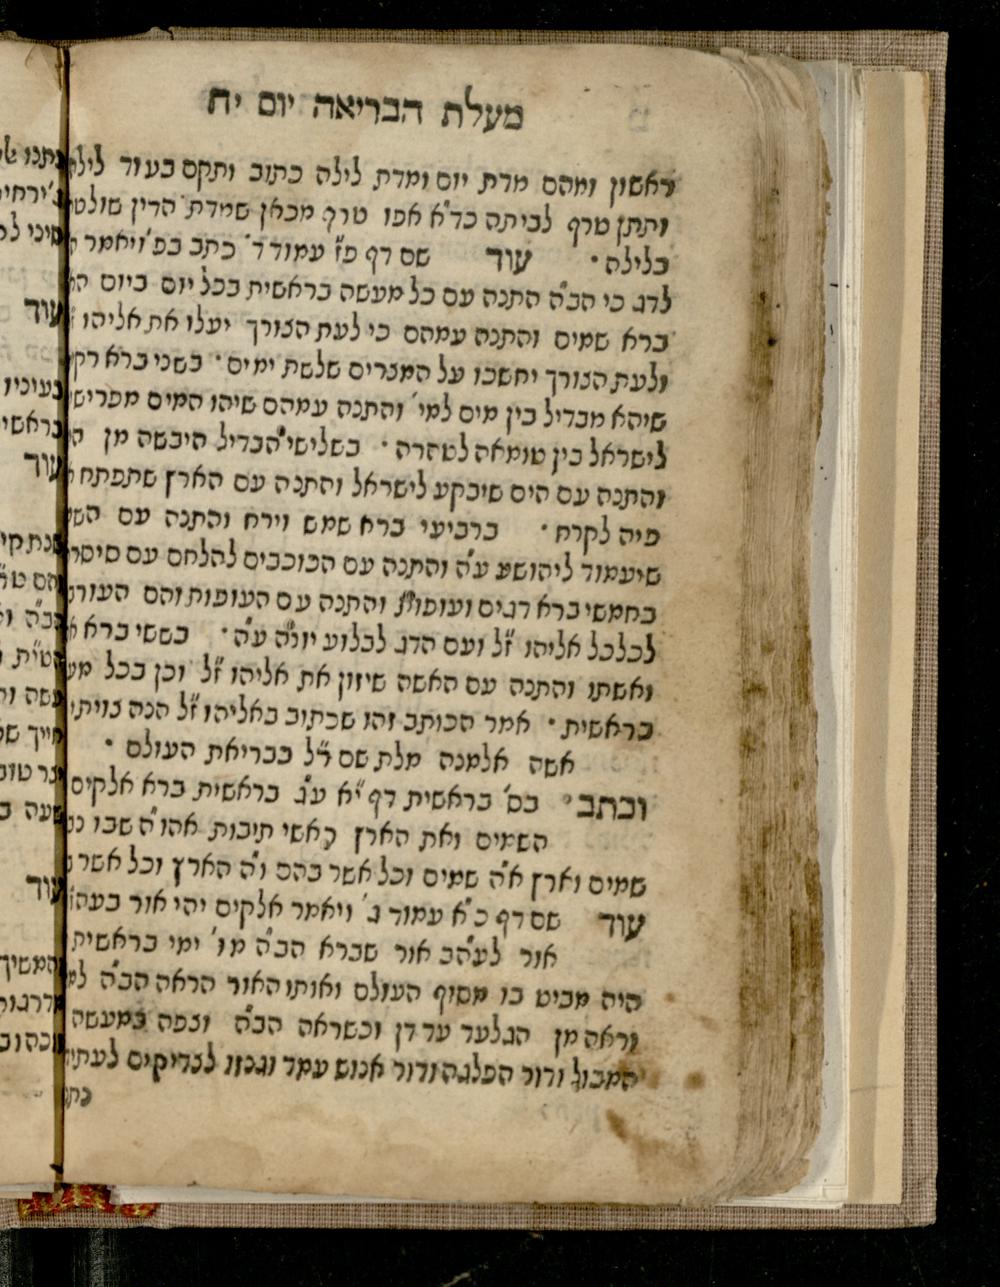 מעלת הבריאה יום יח
ראשון ומהם מדת יום ומדת לילה כתוב ותקם בעוד לילה
ותתן טרף לביתה כד"א אפו טרף מכאן שמדת הדין שולטת
בלילה · עוד שם דף פ"ז עמוד ד' כתב בפ' ויאמר ה'
לדג כי הב"ה התנה עם כל מעשה בראשית בכל יום ביום הא'
ברא שמים והתנה עמהם כי לעת הצורך יעלו את אליהו ז"ל
ולעת הצורך יחשכו על המצרים שלשת ימים · בשני ברא רקיע
שיהא מבדיל בין מים למי' והתנה עמהם שיהו המים מפרישים
לישראל בין טומאה לטהרה · בשלישי הבדיל היבשה מן
והתנה עם הים שיבקע לישראל והתנה עם הארץ שתפתח
פיה לקרח · ברביעי ברא שמש וירח והתנה עם השמש
שיעמוד ליהושע ע"ה והתנה עם הכוכבים להלחם עם סיסרא
בחמשי ברא דגים ועופות והתנה עם העופות והם העורבים
לכלכל אליהו ז"ל ועם הדג לבלוע יונה ע"ה · בששי ברא א
ואשתו והתנה עם האשה שיזון את אליהו ז"ל וכן בכל מעשה
בראשית · אמר הכותב זהו שכתוב באליהו ז"ל הנה צויתי
אשה אלמנה מלת שם ר"ל בבריאת העולם ·
וכתב בס' בראשית דף י"א ע"ג בראשית ברא אלקים
השמים ואת הארץ ראשי תיבות אהו"ה שבו נב
שמים וארץ א"ה שמים וכל אשר בהם ו"ה הארץ וכל אשר ב
עוד שם דף כ"א עמוד ג' ויאמר אלקים יהי אור בעה"ז
אור לעה"ב אור שברא הב"ה מו' ימי בראשית
היה מביט בו מסוף העולם ואותו האור הראה הב"ה למ
וראה מן הגלעד עד דן וכשראה הב"ה וצפה במעשה
המבול ודור הפלגה ודור אנוש עמד וגנזו לצדיקים לעתיד